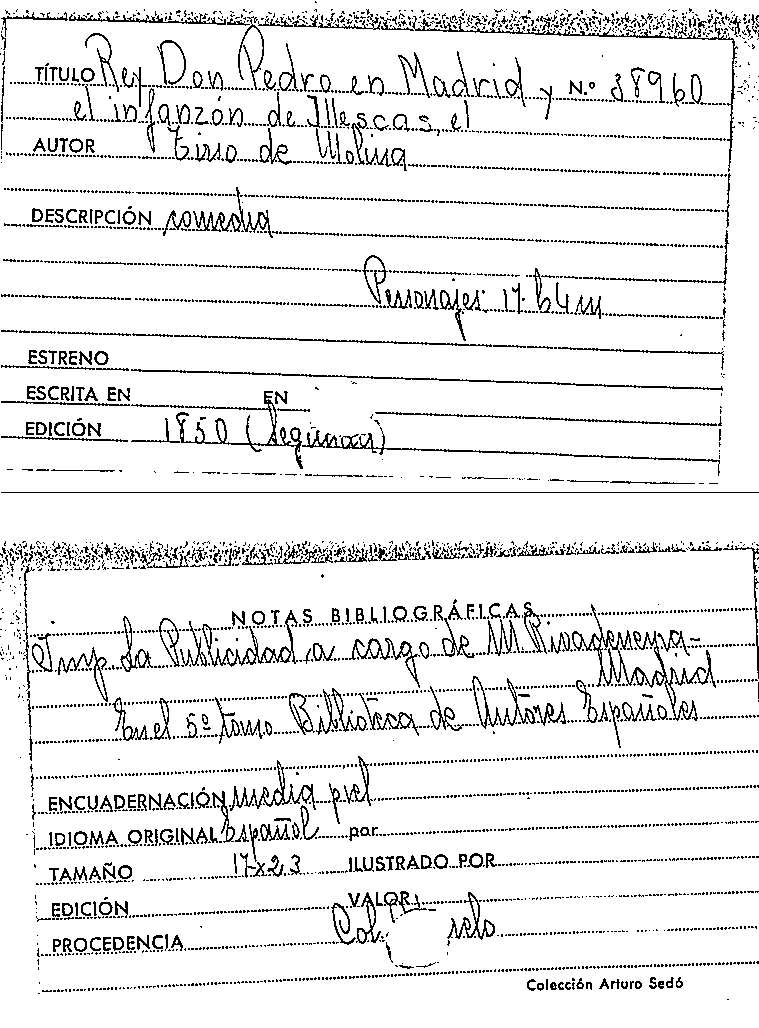 TÍTULO Rey Don Pedro en Madrid y N.º 38960
el infanzón de Illescas, el
AUTOR Tirso de Molina
DESCRIPCIÓN comedia
Personajes: 17 h 4 m
ESTRENO
ESCRITA EN EN
EDICIÓN 1850 (Segunda)
NOTAS BIBLIOGRÁFICAS
Imp. La Publicidad a cargo de M. Rivadeneyra-
Madrid
En el 5º tomo Biblioteca de Autores Españoles
ENCUADERNACIÓN media piel
IDIOMA ORIGINAL Español por
TAMAÑO 17x2,3 ILUSTRADO POR
EDICIÓN VALOR:
PROCEDENCIA Col.
Colección Arturo Sedó